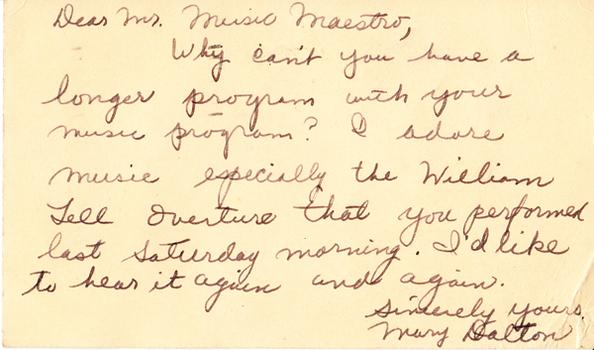 Dear Mr. Music Maestro,
Why can't you have a
longer program with your
music program? I adore
music especially the William
Tell Overture that you performed
last Saturday morning. I'd like
to hear it again and again.
Sincerely yours,
Mary Dalton